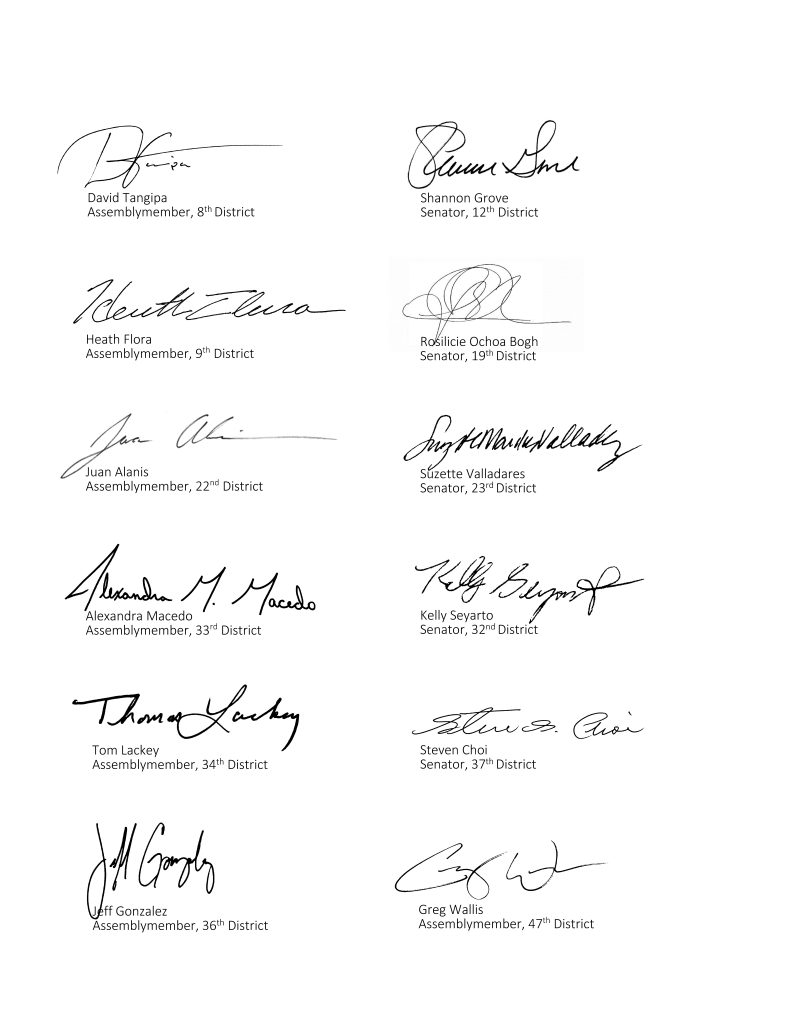 David Tangipa
Assemblymember, 8th District
Shannon Grove
Senator, 12th District
Heath Flora
Heath Flora
Assemblymember, 9th District
Rosilicie Ochoa Bogh
Senator, 19th District
Juan Alanis
Assemblymember, 22nd District
Suzette Valladares
Senator, 23rd District
Alexandra M. Macedo
Alexandra Macedo
Assemblymember, 33rd District
Kelly Seyarto
Kelly Seyarto
Senator, 32nd District
Thomas Lackey
Tom Lackey
Assemblymember, 34th District
Steven S. Choi
Steven Choi
Senator, 37th District
Jeff Gonzalez
Jeff Gonzalez
Assemblymember, 36th District
Greg Wallis
Assemblymember, 47th District